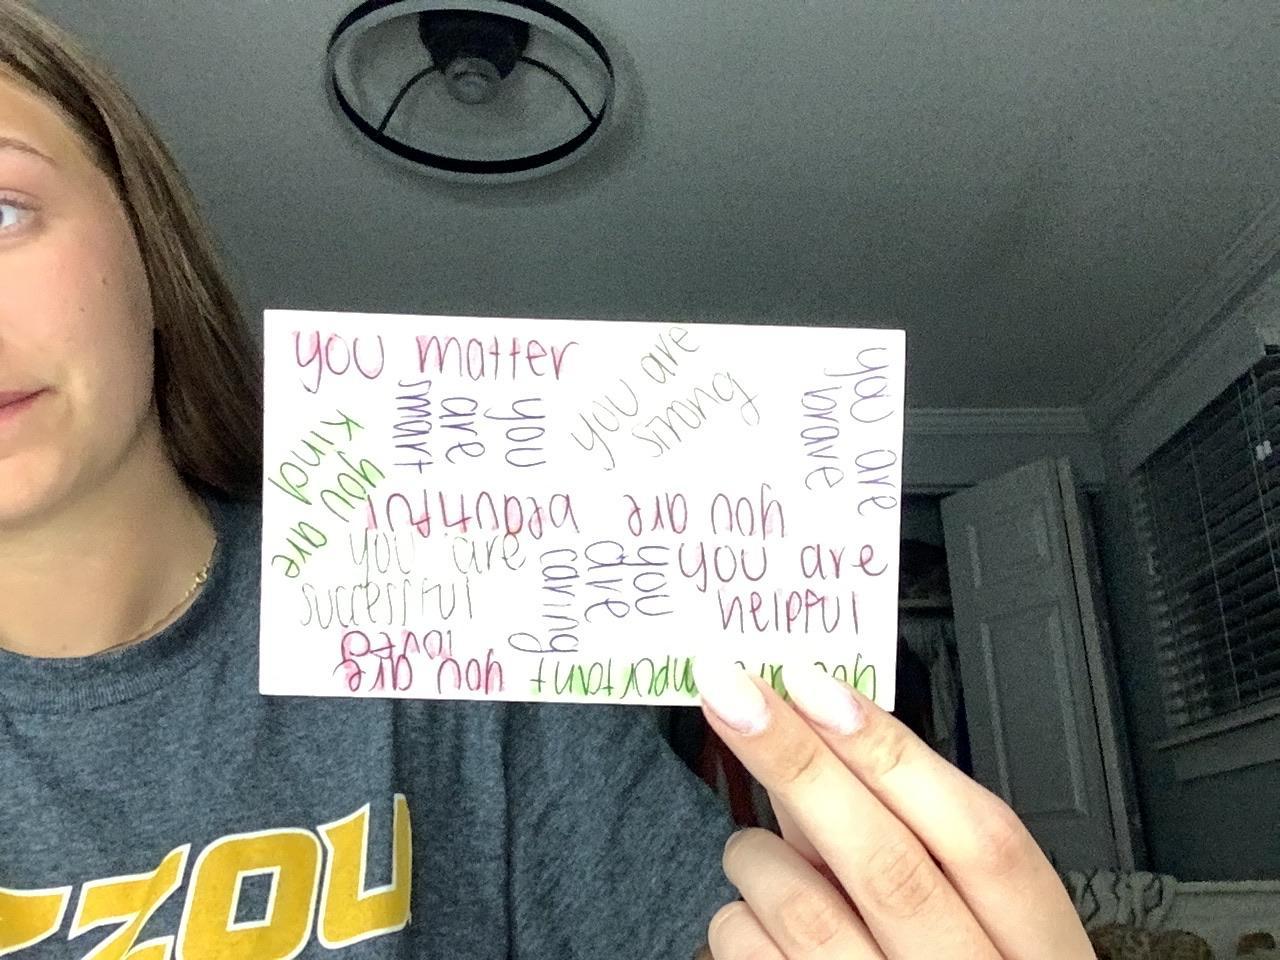 you matter
you are
strong
you are
brave
you
are
smart
you are
kind
you are beautiful
you are
successful
you
are
caring
you are
helpful
you are
loved
you are important
ZZOU